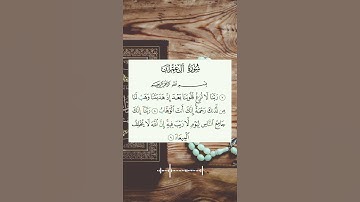 سُورَةُ آلِ عِمْرَانَ
بِسْمِ اللَّهِ الرَّحْمَنِ الرَّحِيمِ
رَبَّنَا لَا تُزِغْ قُلُوبَنَا بَعْدَ إِذْ هَدَيْتَنَا وَهَبْ لَنَا
مِن لَّدُنكَ رَحْمَةً إِنَّكَ أَنتَ الْوَهَّابُ ۝ رَبَّنَا إِنَّكَ
جَامِعُ النَّاسِ لِيَوْمٍ لَّا رَيْبَ فِيهِ إِنَّ اللَّهَ لَا يُخْلِفُ
الْمِيعَادَ